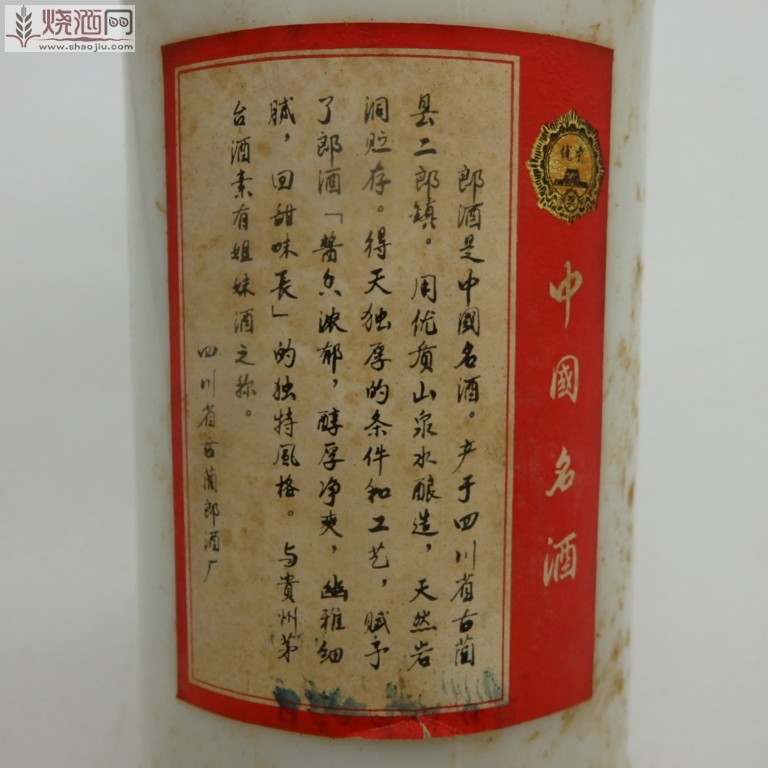 烧酒网
www.shaojiu.com
中國名酒
郎酒是中國名酒。产于四川省古蔺
县二郎鎮。用优质山泉水酿造，天然岩
洞贮存。得天独厚的条件和工艺，赋予
了郎酒「醬香浓郁，醇厚净爽，幽雅细
腻，回甜味長」的独特風格。与貴州茅
台酒素有姐妹酒之称。
四川省古蔺郎酒厂